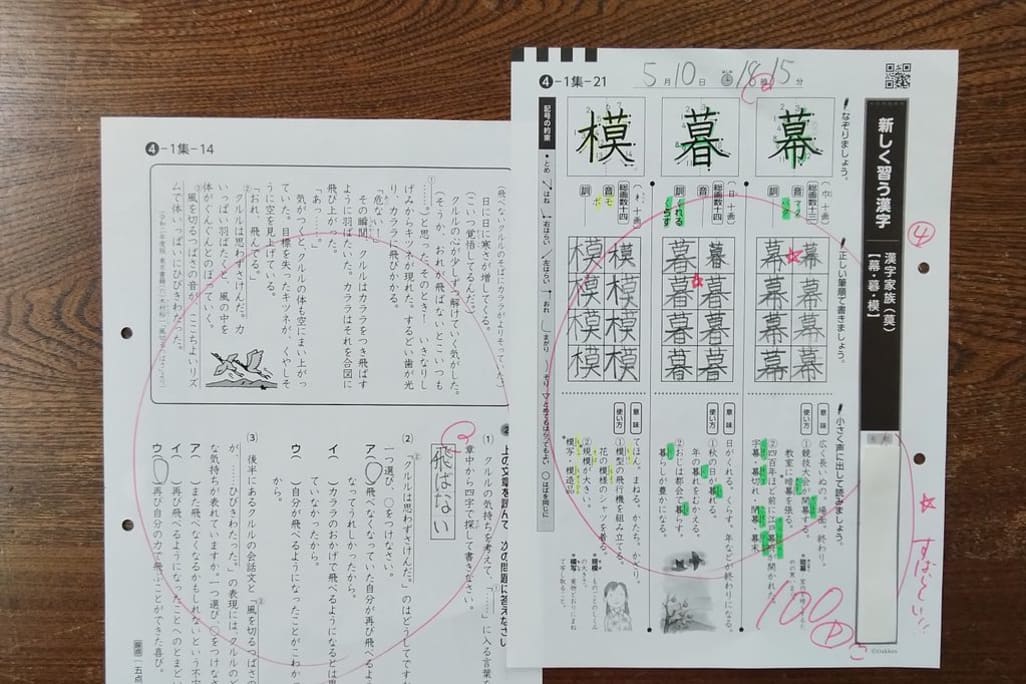 ❹-1集-21
5月10日
18時15分
新しく習う漢字
漢字家族(莫)
【幕・暮・模】
なぞりましょう。
幕
暮
模
正しい筆順で書きましょう。
総画数十三
音
マク
バク
訓
総画数十四
音
訓
くれる
くらす
総画数十四
音
モ
ボ
訓
幕 幕 幕 幕
幕 幕 幕 幕
暮 暮 暮 暮
暮 暮 暮 暮
模 模 模 模
模 模 模 模
小さく声に出して読みましょう。
意味
広く長いぬの。場面。終わり。
使い方
①競技大会が開幕する。
教室に暗幕を張る。
②四百年ほど前に江戸幕府が開かれた。
字幕・幕切れ・閉幕・幕末
意味
日がくれる。くらす。年などが終わりになる。
使い方
①秋の日が暮れる。
年の暮れをむかえる。
②おじは都会で暮らす。
暮らしが豊かになる。
意味
てほん。まねる。かたち。かざり。
使い方
①模型の飛行機を組み立てる。
花の模様のシャツを着る。
②規模が大きい。
模写・模造品
記号の約束
④
すばらしい!!
100
©Gakken
❹-1集-14
日に日に寒さが増してくる。
クルルの心が少しずつ解けていく気がした。
(こいつ、覚悟してるんだ。)
(そうか、おれが飛ばないとこいつも
……)と思った、そのとき! いきなりし
げみからキツネが現れた。するどい歯が光
り、カララに飛びかかる。
「危ない!」
その瞬間、クルルはカララをつき飛ばす
ように羽ばたいた。カララはそれを合図に
飛び上がった。
「あっ……。」
気がつくと、クルルの体も空にまい上がっ
ていた。目標を失ったキツネが、くやしそ
うに空を見上げている。
「おれ、飛んでる。」
クルルは思わずさけんだ。力
いっぱい羽ばたくと、風の中を
体がぐんぐんとのぼっていく。
風を切るつばさの音が、ここちよいリズ
ムで体いっぱいにひびきわたった。
上の文章を読んで、次の問題に答えなさい
① クルルの気持ちを考えて、「……」に入る言葉を
章中から四字で探して書きなさい。
飛ばない
② 「クルルは思わずさけんだ。」のはどうしてですか
一つ選び、○をつけなさい。
ア(○)飛べなくなっていた自分が再び飛べるよう
なってうれしかったから。
イ( )カララのおかげで飛べるようになるとは思
ていなかったから。
ウ( )自分が飛べるようになったことがこわかっ
から。
③ 後半にあるクルルの会話文と、「風を切るつばさの
が、……ひびきわたった。」の表現には、クルルのど
な気持ちが表れていますか。一つ選び、○をつけなさ
ア( )また飛べなくなるかもしれないという不安
イ( )再び飛べるようになったことへのとまどい
ウ(○)再び自分の力で飛ぶことができた喜び。